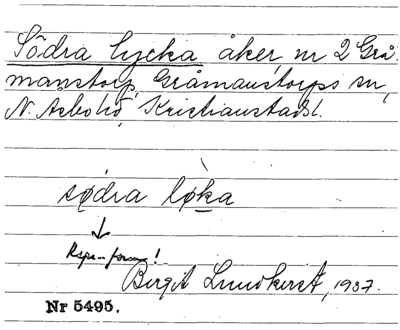 Södra lycka åker nr 2 Grå-
manstorp, Gråmanstorps sn,
N. Åsbo hd, Kristianstads l.
sødra løka
↓
Rspr.-form!
Birgit Lundkvist, 1937.
Nr 5495.